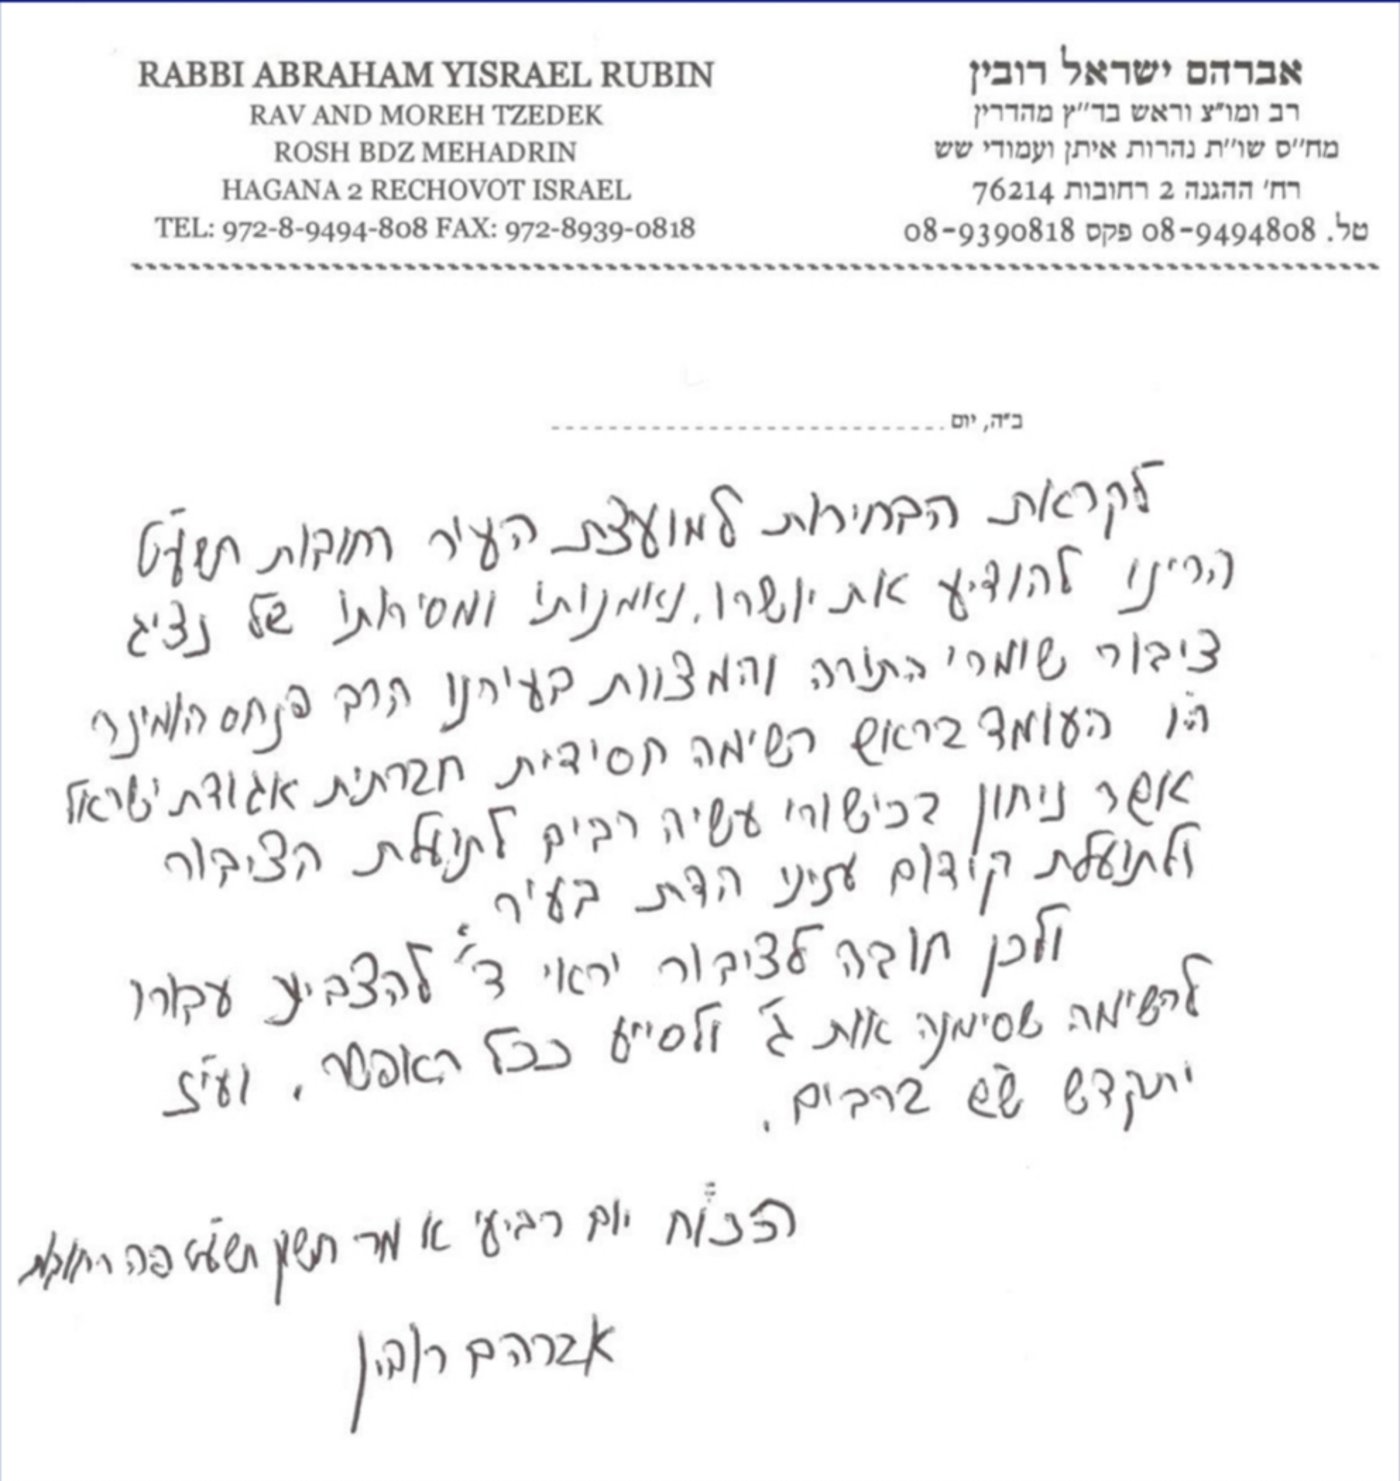 RABBI ABRAHAM YISRAEL RUBIN
RAV AND MOREH TZEDEK
ROSH BDZ MEHADRIN
HAGANA 2 RECHOVOT ISRAEL
TEL: 972-8-9494-808 FAX: 972-8939-0818
אברהם ישראל רובין
רב ומו"צ וראש בד"ץ מהדרין
מח"ס שו"ת נהרות איתן ועמודי שש
רח' ההגנה 2 רחובות 76214
טל. 08-9494808 פקס 08-9390818
ב"ה, יום
לקראת הבחירות למועצת העיר רחובות תשע"ט
הרינו להודיע את יושרו, נאמנותו ומסירותו של נציג
ציבור שומרי התורה והמצוות בעירנו הרב פנחס הומינר
הי"ו העומד בראש רשימה חסידית חברתית אגודת ישראל
אשר ניחון בכישורי עשיה רבים לתועלת הציבור
ולתועלת קידום עניני הדת בעיר.
ולכן חובה לציבור יראי ד' להצביע עבורו
להשימה שסימנה אות ג' ולסייע ככל האפשר, ועי"ז
יתקדש ש"ש ברבים.
הכו"ח יום רביעי א מר חשון תשע"ט פה רחובות
אברהם רובין